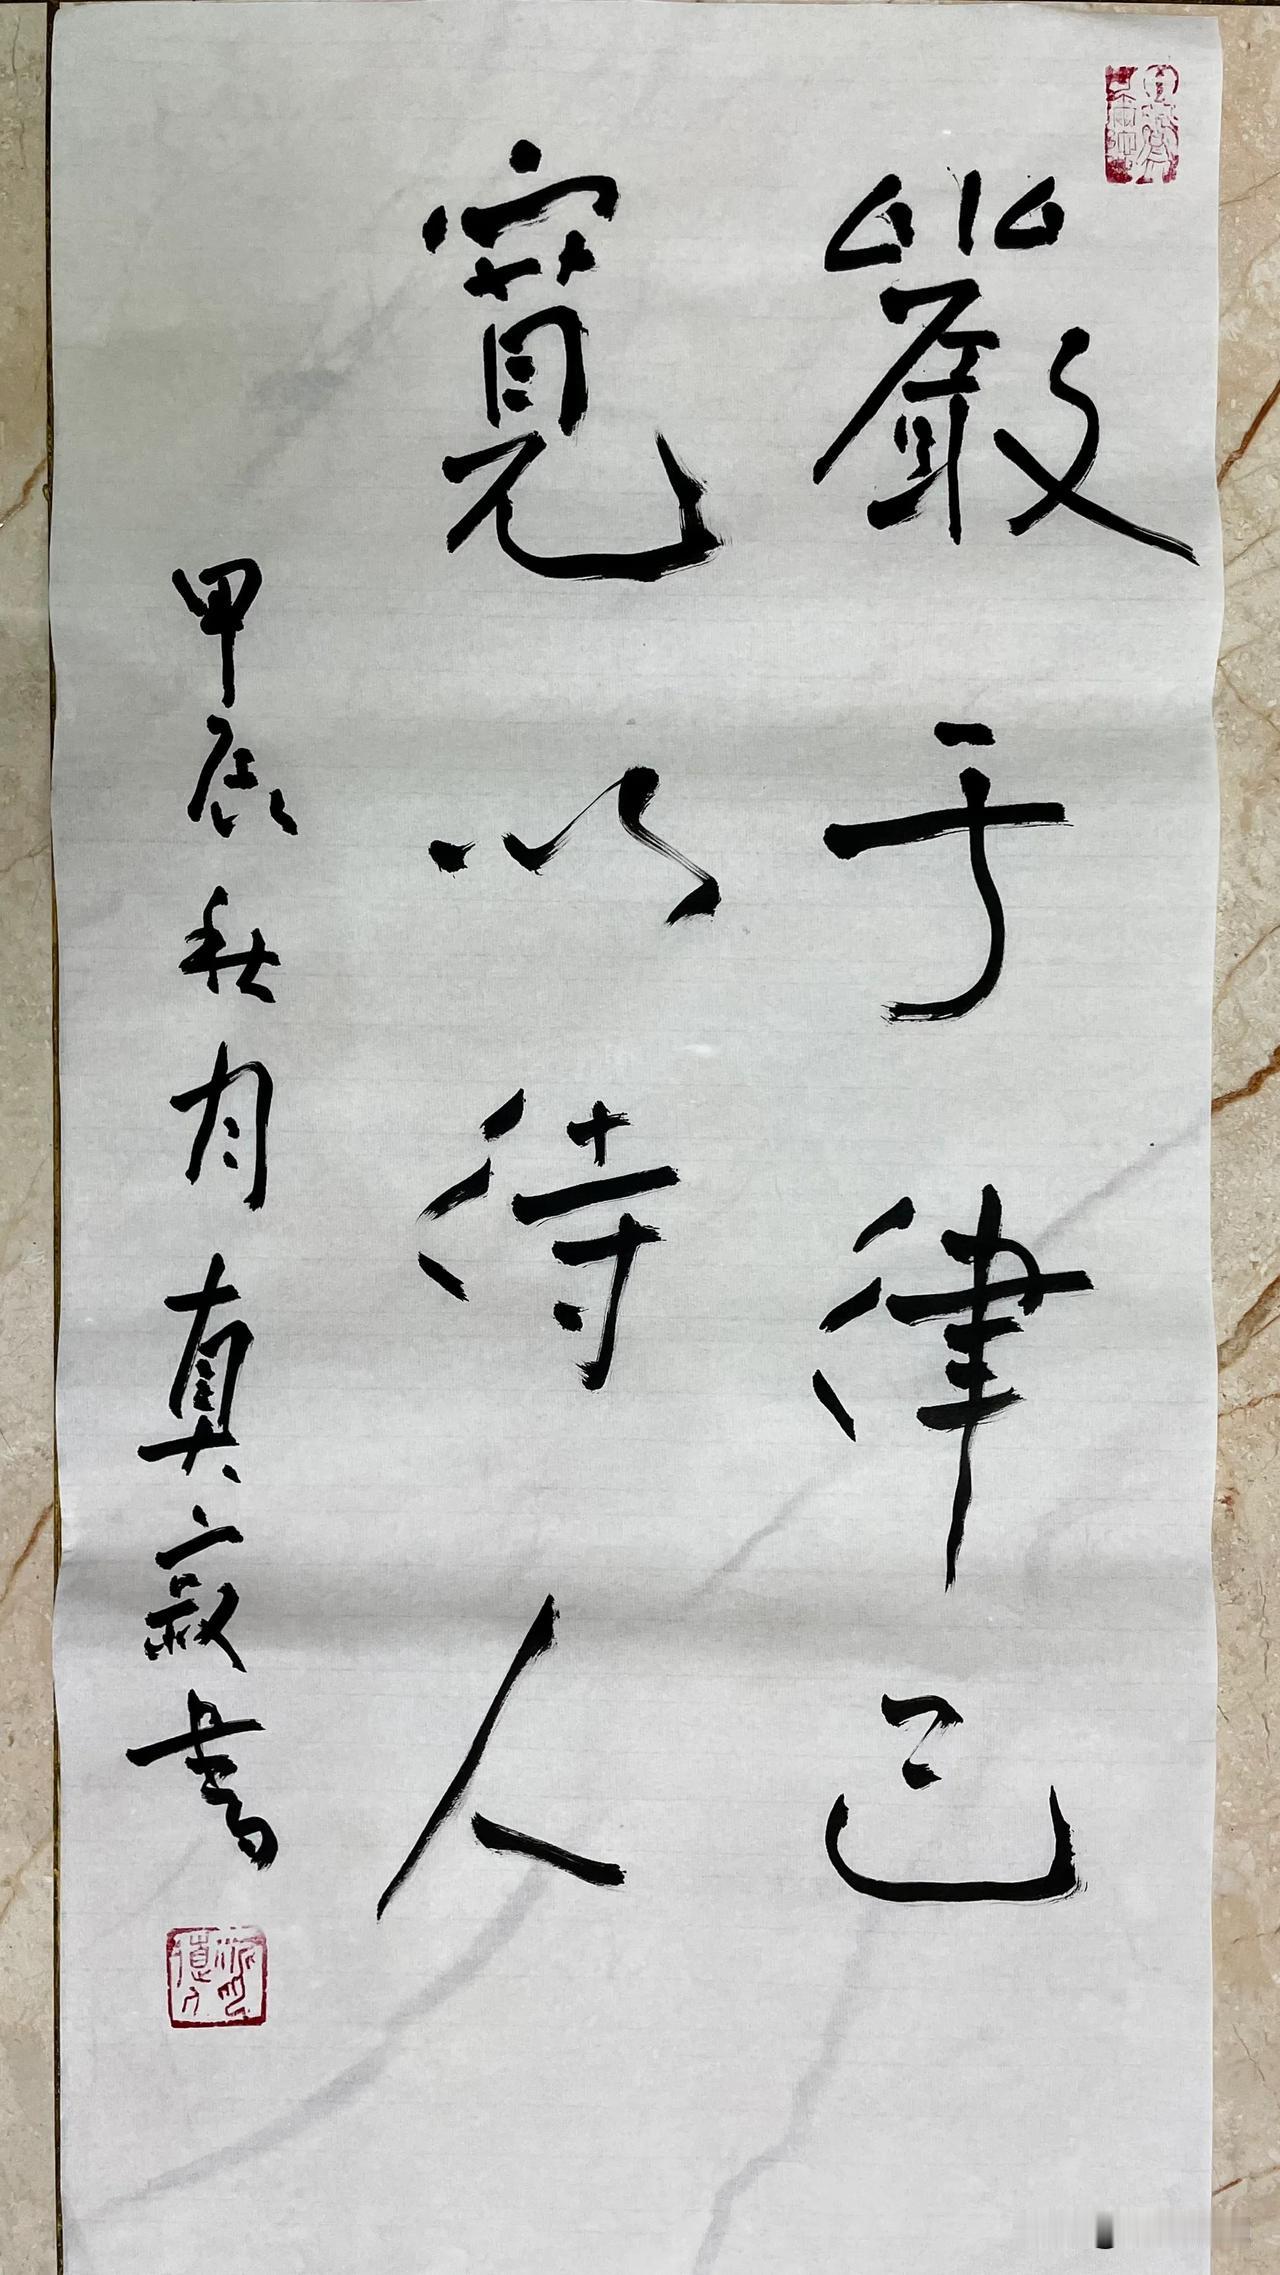 嚴于律己
寬以待人
甲辰秋月真寂書